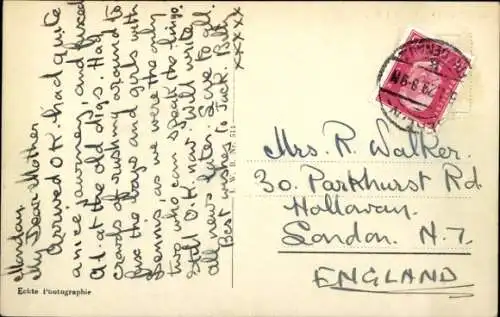 Monday.
My Dear Mother
Arrived O.K. had quite
a nice journey, and fixed
at the old digs. Had
crowds of rushing around to
fix the boys and girls with
Dennis, as we were the only
two who can speak the lingo.
Still O.K. now. Will write
all news later. Love to all.
Best wishes to Jack. Bill
xxxxx
Mrs. R. Walker.
30. Parkhurst Rd
Hollaway.
London. N.7.
ENGLAND
Echte Photographie